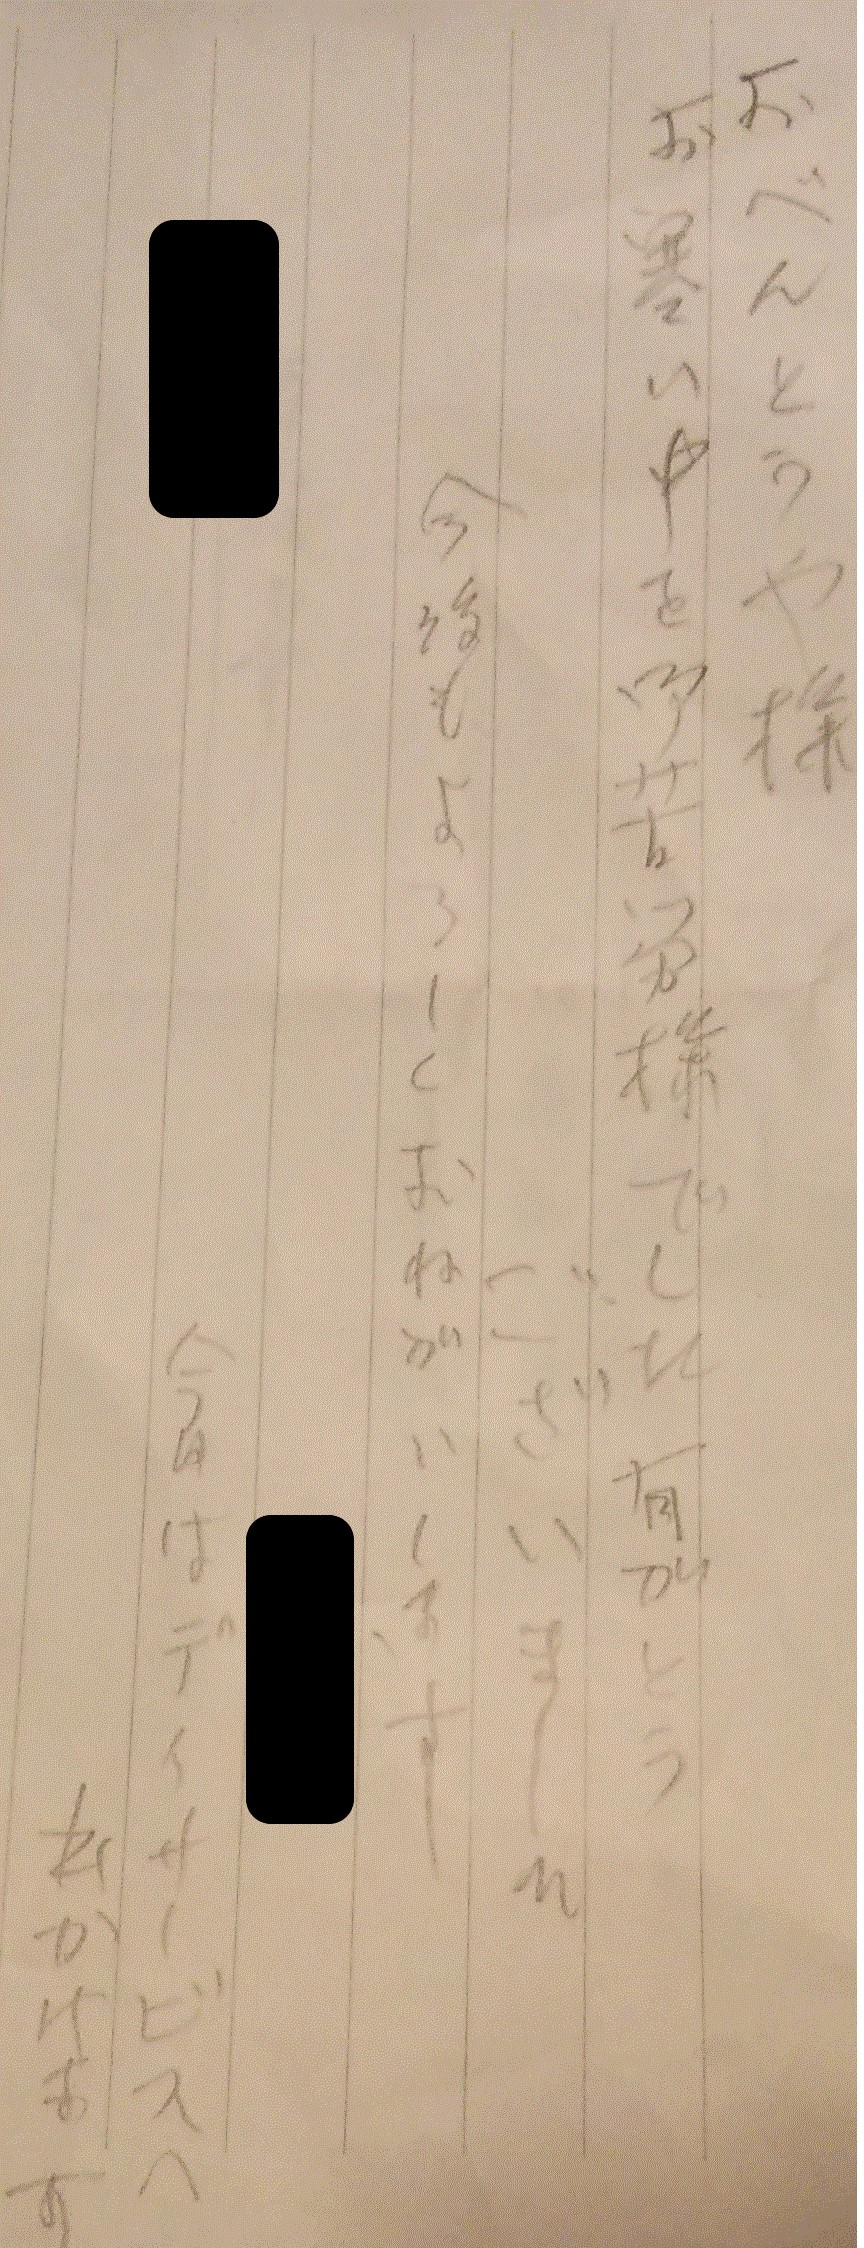 おべんとうや様
お寒い中を御苦労様でした有がとう
ございました
今後もよろしくおねがいします
今日はデイサービスへ
出かけます